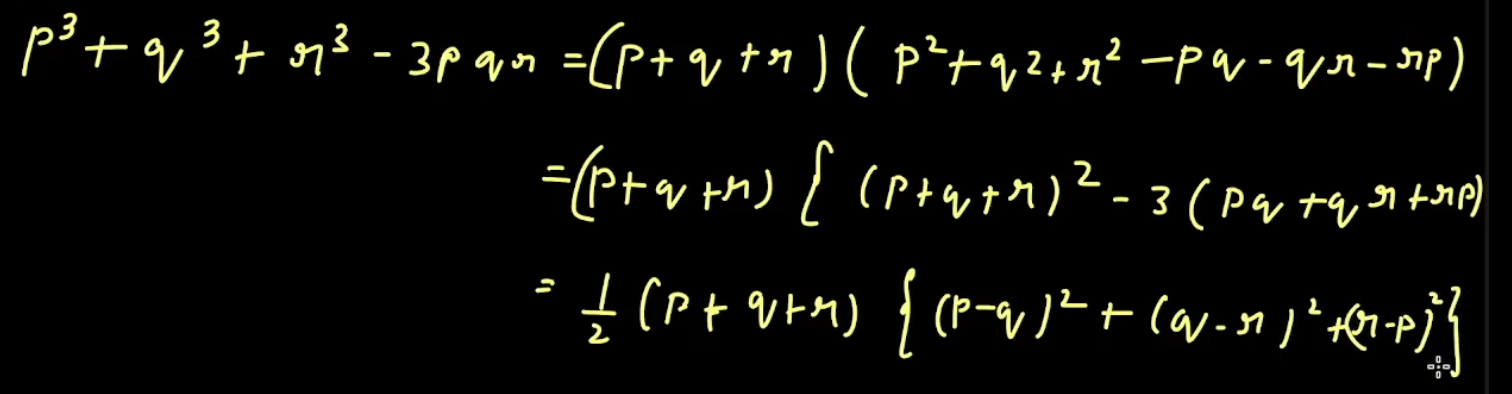 p³ + q³ + r³ - 3pqr = (p + q + r) (p² + q2 + r² - pq - qr - rp)
= (p + q + r) { (p + q + r)² - 3 (pq + qr + rp)
= 1/2 (p + q + r) { (p - q)² + (q - r)² + (r - p)² }